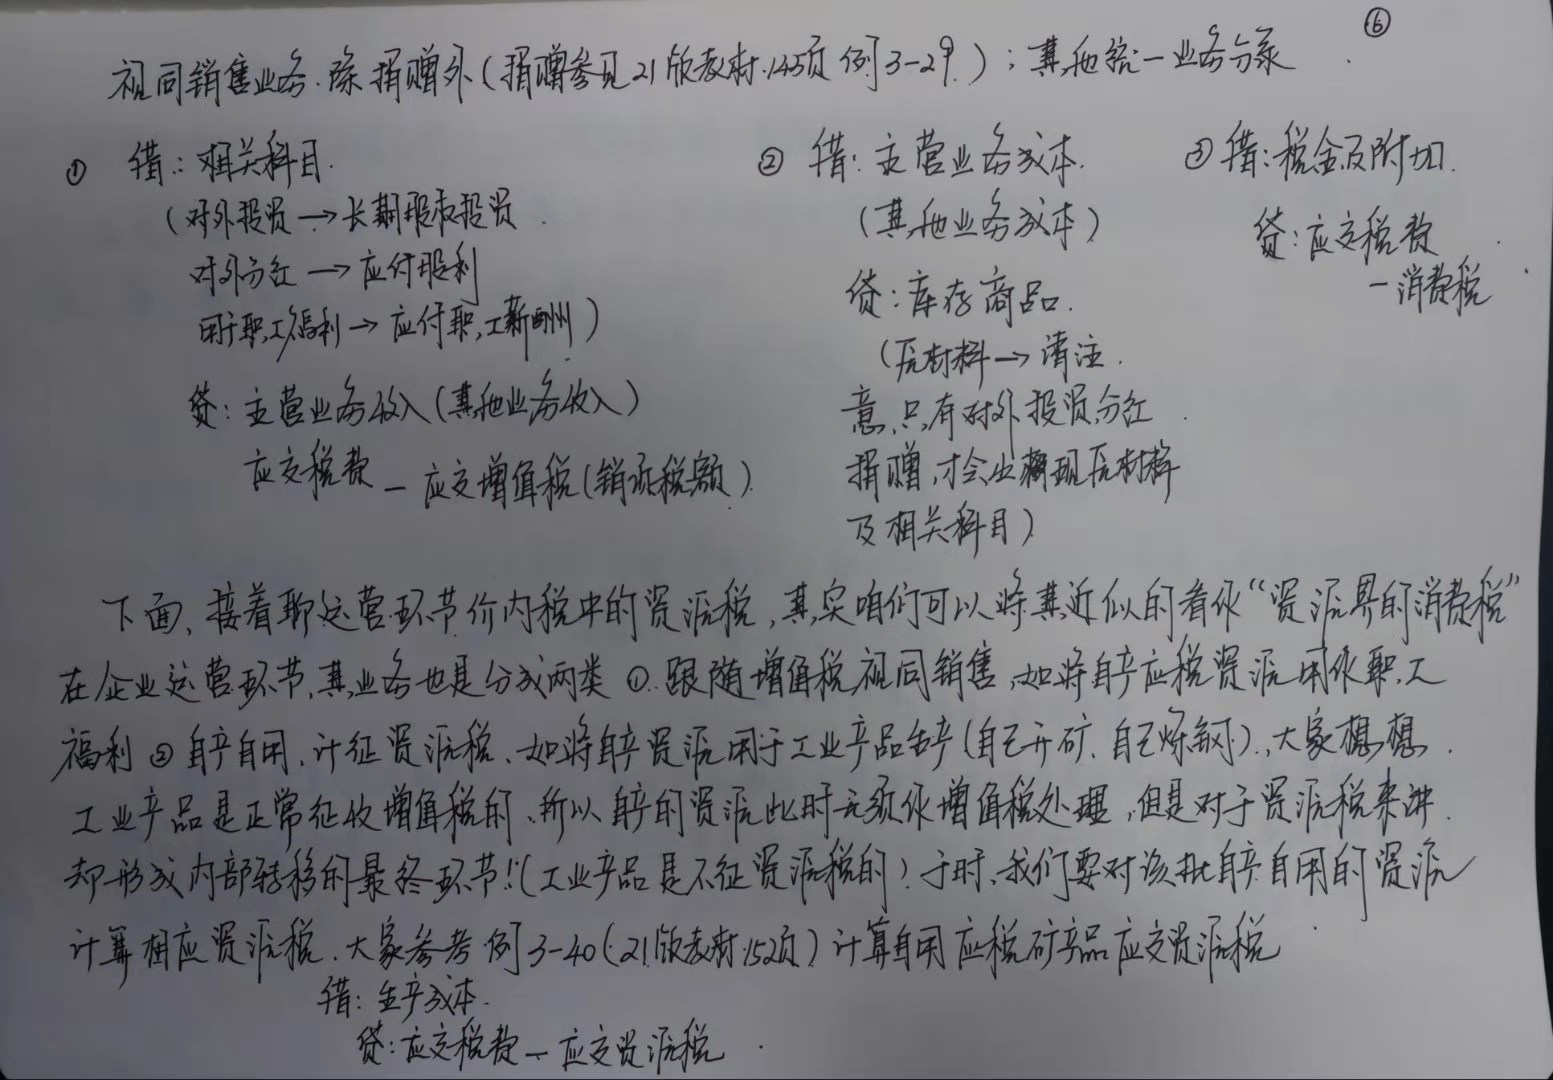 ⑥
视同销售业务.除捐赠外(捐赠参见21版教材.145页例3-29.);其他统一业务分录
① 借:相关科目.
(对外投资→长期股权投资
对外分红→应付股利
用于职工福利→应付职工薪酬)
贷:主营业务收入(其他业务收入)
应交税费-应交增值税(销项税额)
② 借:主营业务成本.
(其他业务成本)
贷:库存商品.
(原材料→请注
意,只有对外投资分红
捐赠,才会出现原材料
及相关科目)
③ 借:税金及附加.
贷:应交税费
-消费税
下面,接着聊运营环节价内税中的资源税,其实咱们可以将其近似的看作“资源界的消费税”
在企业运营环节,其业务也是分成两类①.跟随增值税视同销售,如将自产应税资源用作职工
福利②自产自用,计征资源税、如将自产资源用于工业产品生产(自己开矿、自己炼钢),大家想想.
工业产品是正常征收增值税的、所以自产的资源此时无须作增值税处理,但是对于资源税来讲.
却形成内部转移的最终环节!(工业产品是不征资源税的)于时、我们要对该批自产自用的资源
计算相应资源税.大家参考例3-40(21版教材152页)计算自用应税矿产品应交资源税
借:生产成本.
贷:应交税费-应交资源税